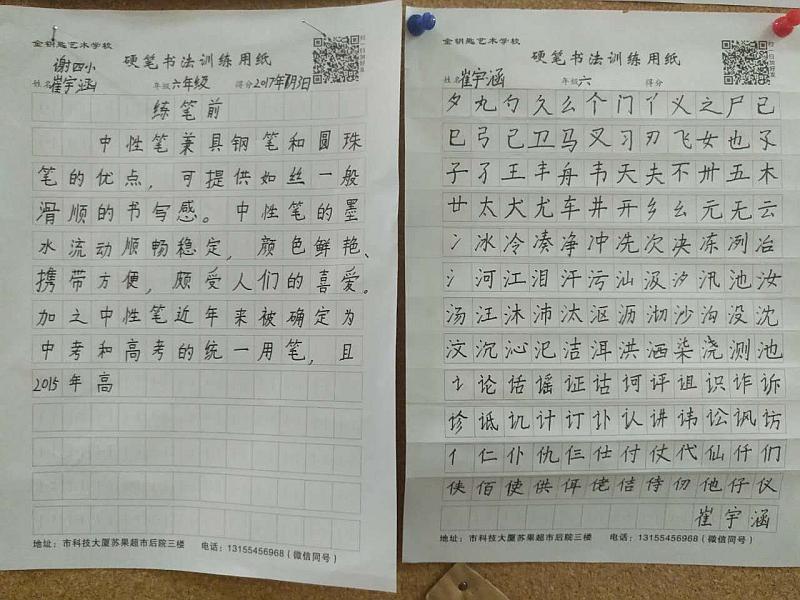 金钥匙艺术学校
硬笔书法训练用纸
谢四小
姓名 崔宇涵 年级 六年级 得分 2017年7月3日
练笔前
中性笔兼具钢笔和圆珠
笔的优点，可提供如丝一般
滑顺的书写感。中性笔的墨
水流动顺畅稳定，颜色鲜艳、
携带方便，颇受人们的喜爱。
加之中性笔近年来被确定为
中考和高考的统一用笔，且
2015年高
地址：市科技大厦苏果超市后院三楼 电话：13155456968（微信同号）
金钥匙艺术学校
硬笔书法训练用纸
姓名 崔宇涵 年级 六 得分
夕丸勺久么个门丫义之尸已
巳弓己卫马叉习刃飞女也孓
子孑王丰舟韦天夫不卅五木
廿太犬尤车井开乡幺元无云
冫冰冷凑净冲冼次决冻冽冶
氵河江泪汗污汕汲汐汛池汝
汤汪沐沛汰沤沥沏沙汩没沈
汶沉沁汜洁洱洪洒染浇测池
讠论话谣证诂诃评诅识诈诉
诊诋讥计订讣认讲讳讼讽访
亻仁仆仇仨仕付仗代仙仟们
侠佰使供佴佬佶侍仞他仔仪
崔宇涵
地址：市科技大厦苏果超市后院三楼 电话：13155456968（微信同号）